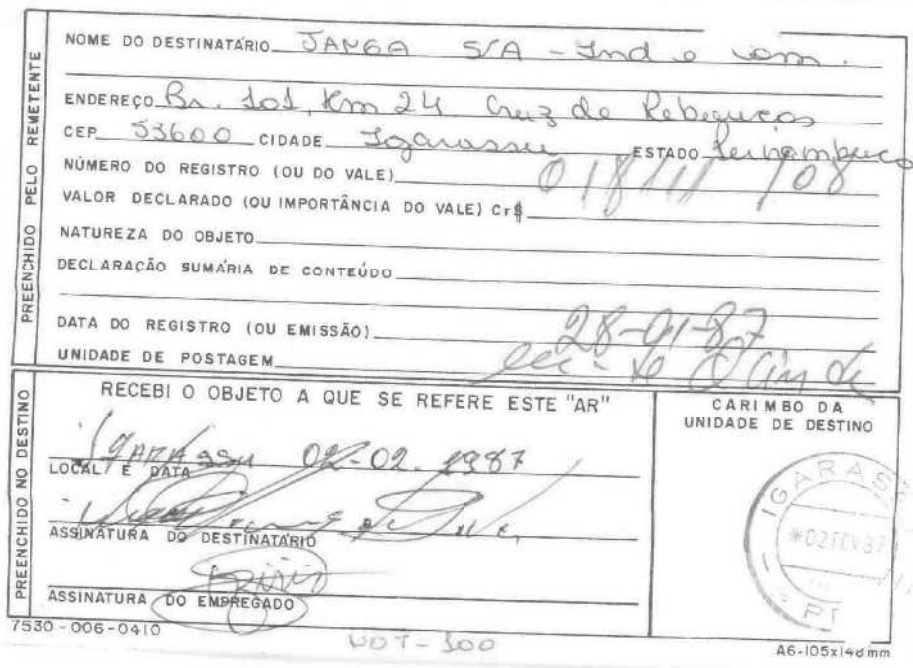 PREENCHIDO PELO REMETENTE
NOME DO DESTINATÁRIO JANGA S/A - Ind e com.
ENDEREÇO Br. 101, Km 24 Cruz de Rebouças
CEP 53600 CIDADE Igarassu ESTADO Pernambuco
NÚMERO DO REGISTRO (OU DO VALE)
VALOR DECLARADO (OU IMPORTÂNCIA DO VALE) Cr$
NATUREZA DO OBJETO
DECLARAÇÃO SUMÁRIA DE CONTEÚDO
DATA DO REGISTRO (OU EMISSÃO) 28-01-87
UNIDADE DE POSTAGEM
PREENCHIDO NO DESTINO
RECEBI O OBJETO A QUE SE REFERE ESTE "AR"
Igarassu 02-02-1987
LOCAL E DATA
ASSINATURA DO DESTINATÁRIO
ASSINATURA DO EMPREGADO
CARIMBO DA
UNIDADE DE DESTINO
IGARASS
*02FEV87
7530-006-0410
NOT-100
A6-105x148mm